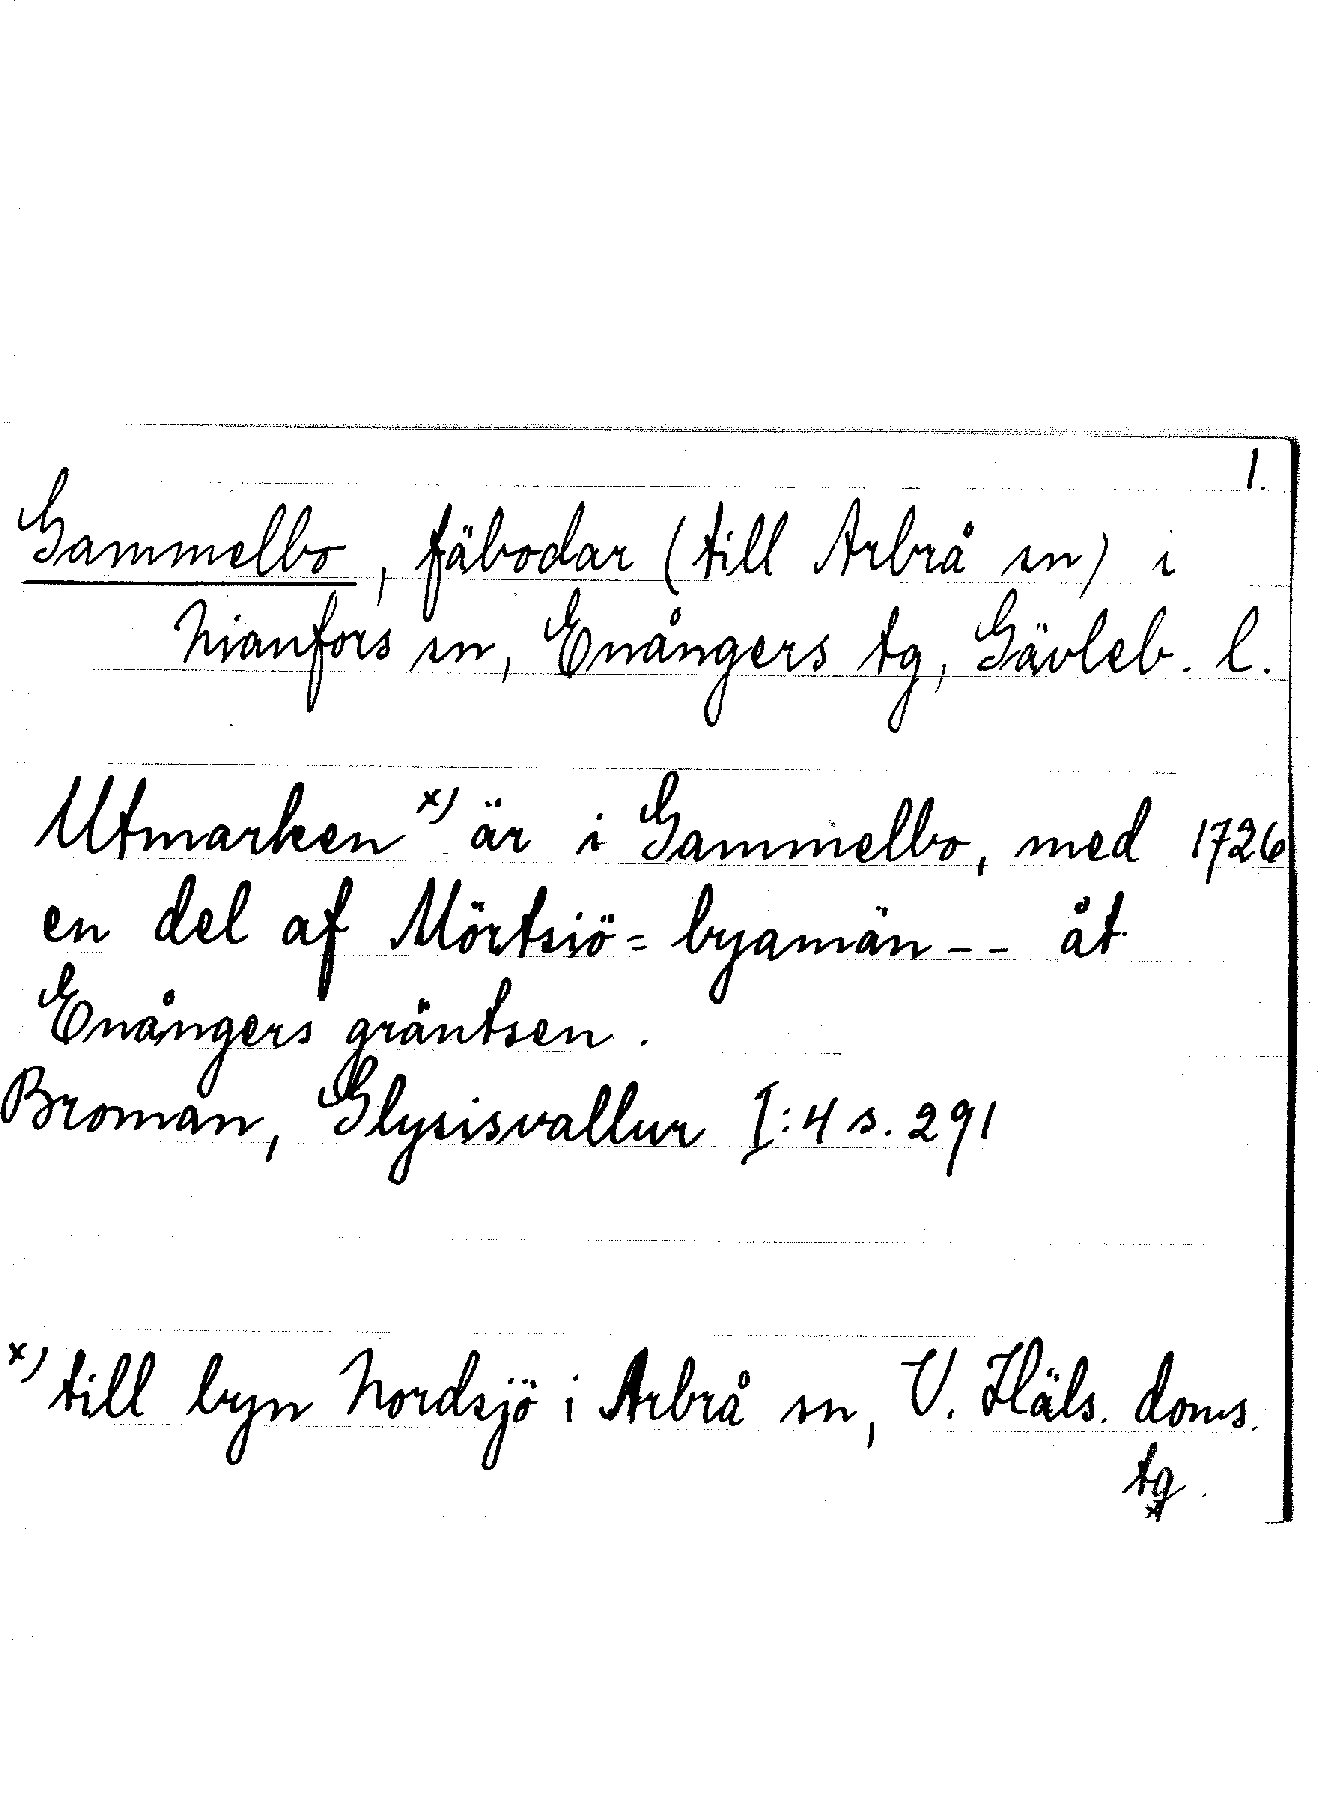 1.
Gammelbo, fäbodar (till Arbrå sn) i
Nianfors sn, Enångers tg, Gävleb. l.
Utmarken x) är i Gammelbo, med 1726
en del af Mörtsiö= byamän -- åt
Enångers gräntsen.
Broman, Glysisvallur I:4 s. 291
x) till byn Nordsjö i Arbrå sn, V. Häls. doms.
tg.